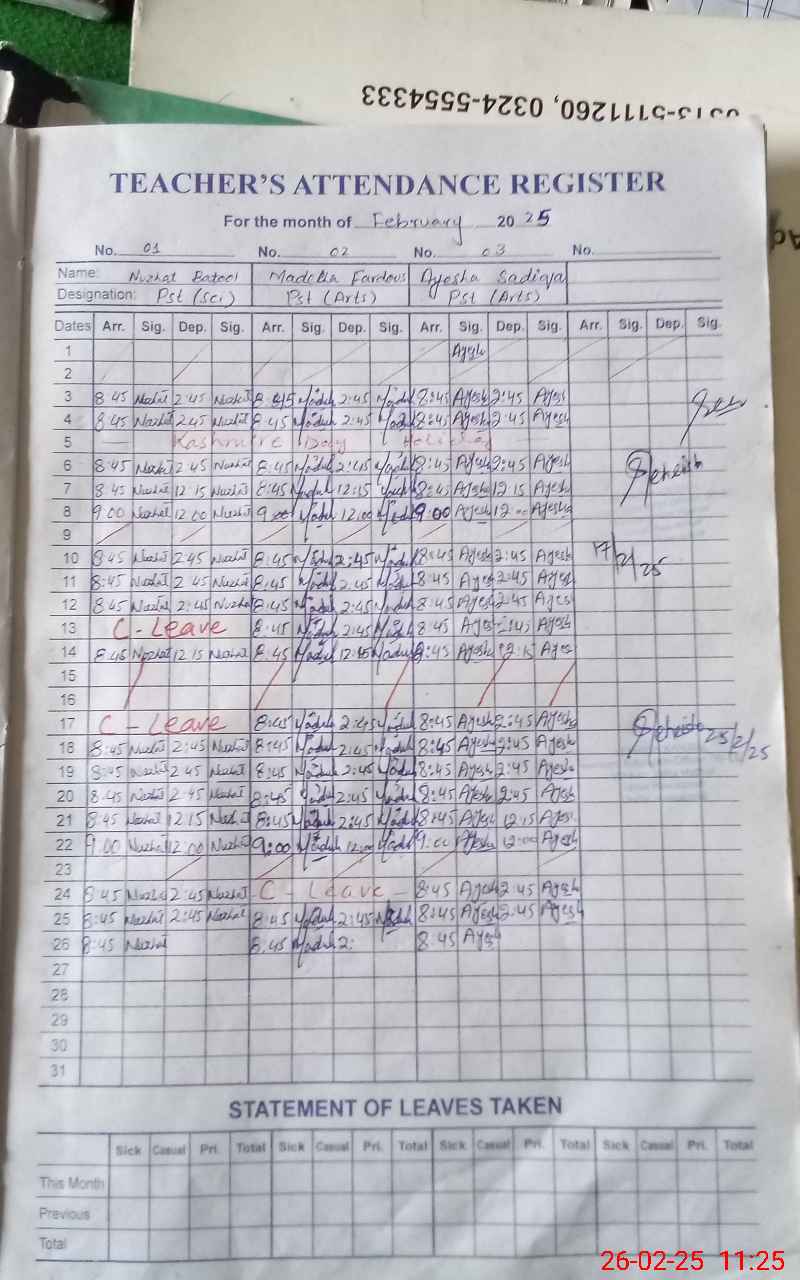 0313-5111260, 0324-5554333
TEACHER'S ATTENDANCE REGISTER
For the month of February 20 25
No. 01 No. 02 No. 03 No.
Name: Nuzhat Batool Madeha Fardous Ayesha Sadiqa
Designation: Pst (Sci) Pst (Arts) Pst (Arts)
Dates Arr. Sig. Dep. Sig. Arr. Sig. Dep. Sig. Arr. Sig. Dep. Sig. Arr. Sig. Dep. Sig.
1 Ayesh
2
3 8:45 Nuzhat 2:45 Nuzhat 8:45 Madeh 2:45 Madeh 8:45 Ayesh 2:45 Ayesh
4 8:45 Nuzhat 2:45 Nuzhat 8:45 Madeh 2:45 Madeh 8:45 Ayesh 2:45 Ayesh
5 Kashmire Day Holiday
6 8:45 Nuzhat 2:45 Nuzhat 8:45 Madeh 2:45 Madeh 8:45 Ayesh 2:45 Ayesh
7 8:45 Nuzhat 12:15 Nuzhat 8:45 Madeh 12:15 Madeh 8:45 Ayesh 12:15 Ayesh
8 9:00 Nuzhat 12:00 Nuzhat 9:00 Madeh 12:00 Madeh 9:00 Ayesh 12:00 Ayesha
9
10 8:45 Nuzhat 2:45 Nuzhat 8:45 Madeh 2:45 Madeh 8:45 Ayesh 2:45 Ayesh 17/2/25
11 8:45 Nuzhat 2:45 Nuzhat 8:45 Madeh 2:45 Madeh 8:45 Ayesh 2:45 Ayesh
12 8:45 Nuzhat 2:45 Nuzhat 8:45 Madeh 2:45 Madeh 8:45 Ayesh 2:45 Ayesh
13 C - Leave 8:45 Madeh 2:45 Madeh 8:45 Ayesh 2:45 Ayesh
14 8:45 Nuzhat 12:15 Nuzhat 8:45 Madeh 12:15 Madeh 8:45 Ayesha 12:15 Ayesh
15
16
17 C - Leave 8:45 Madeh 2:45 Madeh 8:45 Ayesh 2:45 Ayesha
18 8:45 Nuzhat 2:45 Nuzhat 8:45 Madeh 2:45 Madeh 8:45 Ayesh 2:45 Ayesh 25/2/25
19 8:45 Nuzhat 2:45 Nuzhat 8:45 Madeh 2:45 Madeh 8:45 Ayesh 2:45 Ayesha
20 8:45 Nuzhat 2:45 Nuzhat 8:45 Madeh 2:45 Madeh 8:45 Ayesh 2:45 Ayesh
21 8:45 Nuzhat 12:15 Nuzhat 8:45 Madeh 2:45 Madeh 8:45 Ayesh 12:15 Ayesh
22 9:00 Nuzhat 12:00 Nuzhat 9:00 Madeh 12:00 Madeh 9:00 Ayesha 12:00 Ayesh
23
24 8:45 Nuzhat 2:45 Nuzhat C - Leave - 8:45 Ayesh 2:45 Ayesh
25 8:45 Nuzhat 2:45 Nuzhat 8:45 Madeh 2:45 Madeh 8:45 Ayesh 2:45 Ayesh
26 8:45 Nuzhat 8:45 Madeh 2: 8:45 Ayesh
27
28
29
30
31
STATEMENT OF LEAVES TAKEN
Sick Casual Pri. Total Sick Casual Pri. Total Sick Casual Pri. Total Sick Casual Pri. Total
This Month
Previous
Total
26-02-25 11:25